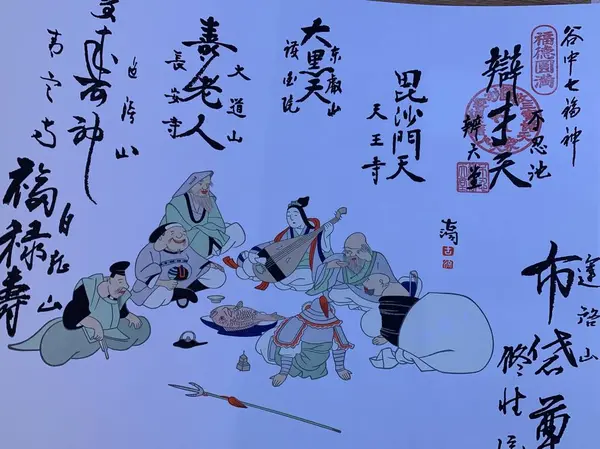 谷中七福神
福德圓滿
辯才天
不忍池
辨天堂
毘沙門天
天王寺
大黒天
東叡山
護国院
寿老人
大道山
長安寺
神
山
青雲寺
福禄寿
白龍山
運啓山
布袋尊
修性院